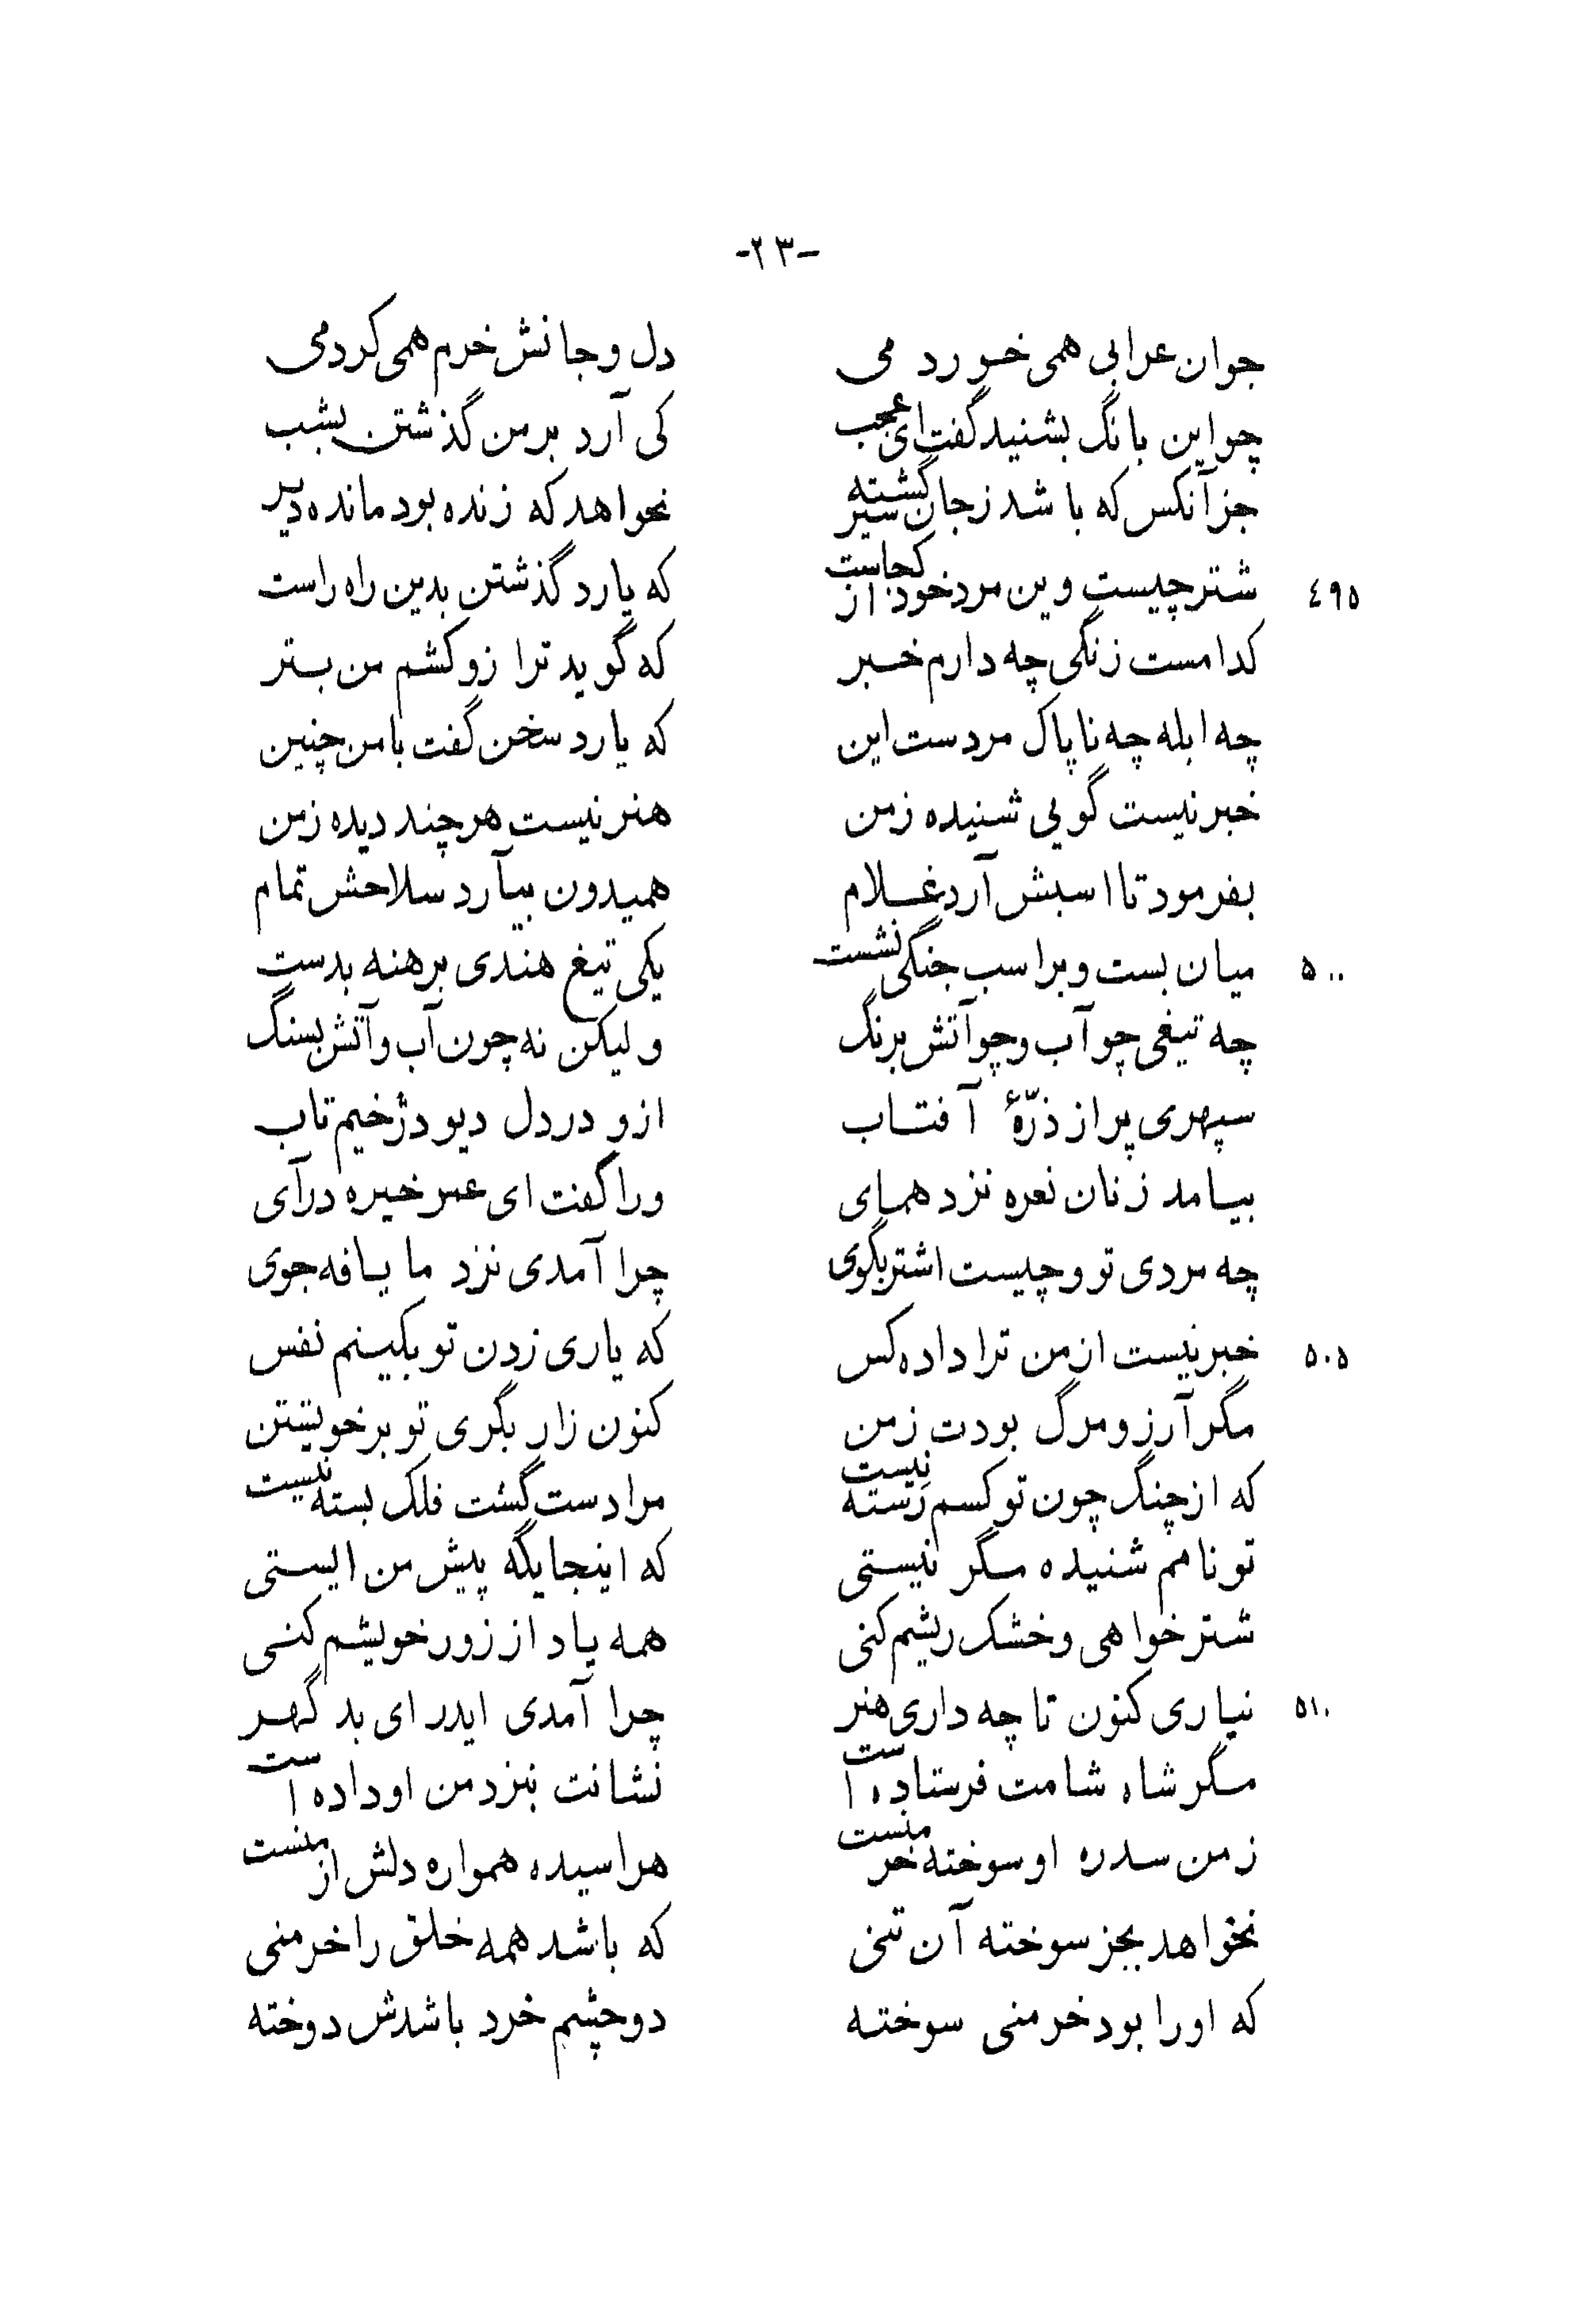 -۲۳-
جوان عرابی همی خورد می دل و جانش خرم همی کرد می
چو این بانگ بشنید گفت ای عجب کی آرد بر من گذشتن بشب
جز آنکس که باشد ز جان گشته سیر نخواهد که زنده بود مانده دیر
٤٩٥ شتر چیست وین مرد خود از کجاست که یارد گذشتن بدین راه راست
کدامست زنگی چه دارم خبر که گوید ترا زو کشم من بتر
چه ابله چه ناپاک مردست این که یارد سخن گفت با من چنین
خبر نیست گویی شنیده ز من هنر نیست هر چند دیده ز من
بفرمود تا اسبش آرد غلام همیدون بیآرد سلاحش تمام
۵۰۰ میان بست و بر اسب جنگی نشست یکی تیغ هندی برهنه بدست
چه تیغی چو آب و چو آتش برنگ ولیکن نه چون آب و آتش بسنگ
سپهری پر از ذرّهٔ آفتاب ازو در دل دیو دژخیم تاب
بیامد زنان نعره نزد همای ورا گفت ای عمر خیره درآی
چه مردی تو و چیست اشتر بگوی چرا آمدی نزد ما یافه جوی
۵۰۵ خبر نیست از من ترا داده کس که یاری زدن تو بکینم نفس
مگر آرزو مرگ بودت ز من کنون زار بگری تو بر خویشتن
که از چنگ چون تو کسم رسته نیست مرا دست گشت فلک بسته نیست
تو نامم شنیده مگر نیستی که اینجایگه پیش من ایستی
شتر خواهی و خشک ریشم کنی همه یاد از زور خویشم کنی
۵۱۰ نیاری کنون تا چه داری هنر چرا آمدی ایدر ای بد گهر
مگر شاه شامت فرستاده است نشانت بنزد من او داده است
ز من سدره او سوخته خرمنست هراسیده همواره دلش از منست
نخواهد بجز سوخته آن تنی که باشد همه خلق را خرمنی
که او را بود خرمنی سوخته دو چشم خرد باشدش دوخته